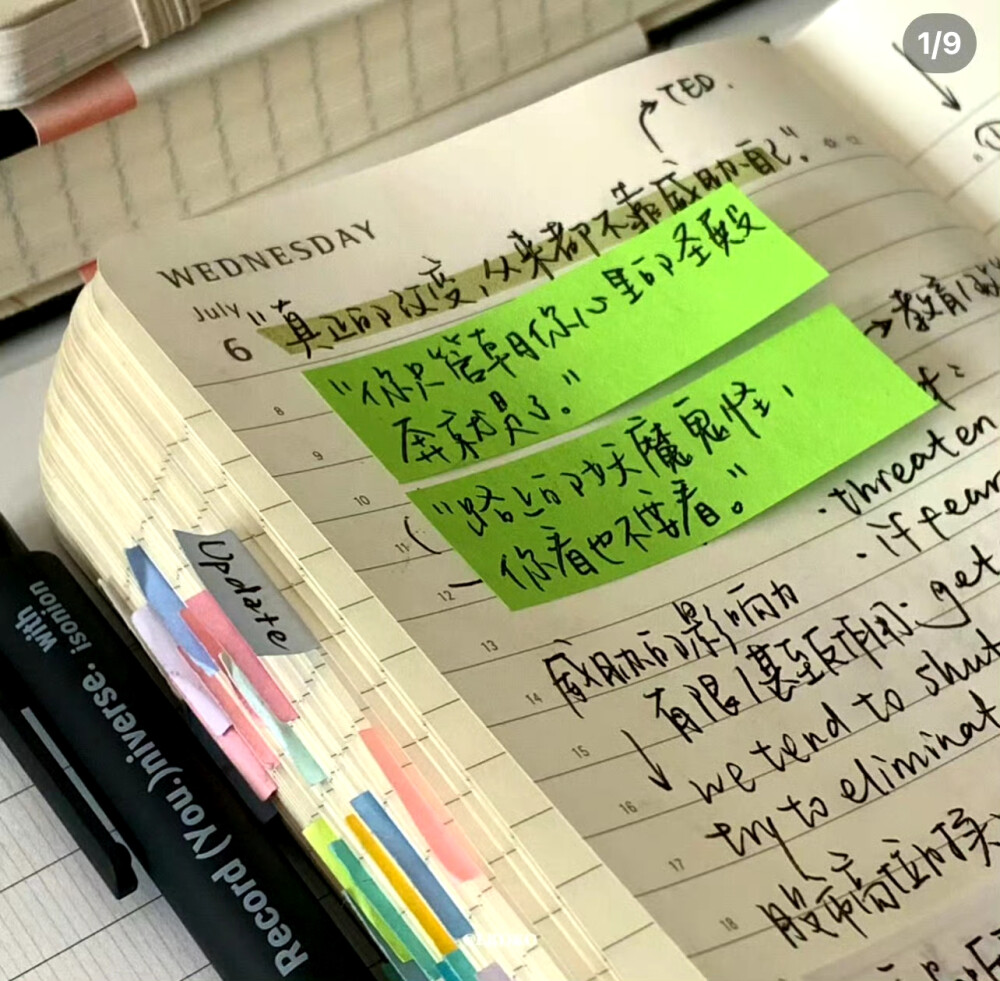 1/9
TED.
WEDNESDAY
July
6
"真正的改变,从来都不靠威胁自己"。
"你只管朝你心里的圣殿
奔就是了。"
→教育
8
9
"路上的妖魔鬼怪,
你看也不要看。"
10
11
12
· threaten
· if fear
13
威胁的影响力
14
有限/甚至反作用: get
15
we tend to shut
16
try to eliminat
17
股市高位的
18
Update
Record (You.)niverse.
with isonion